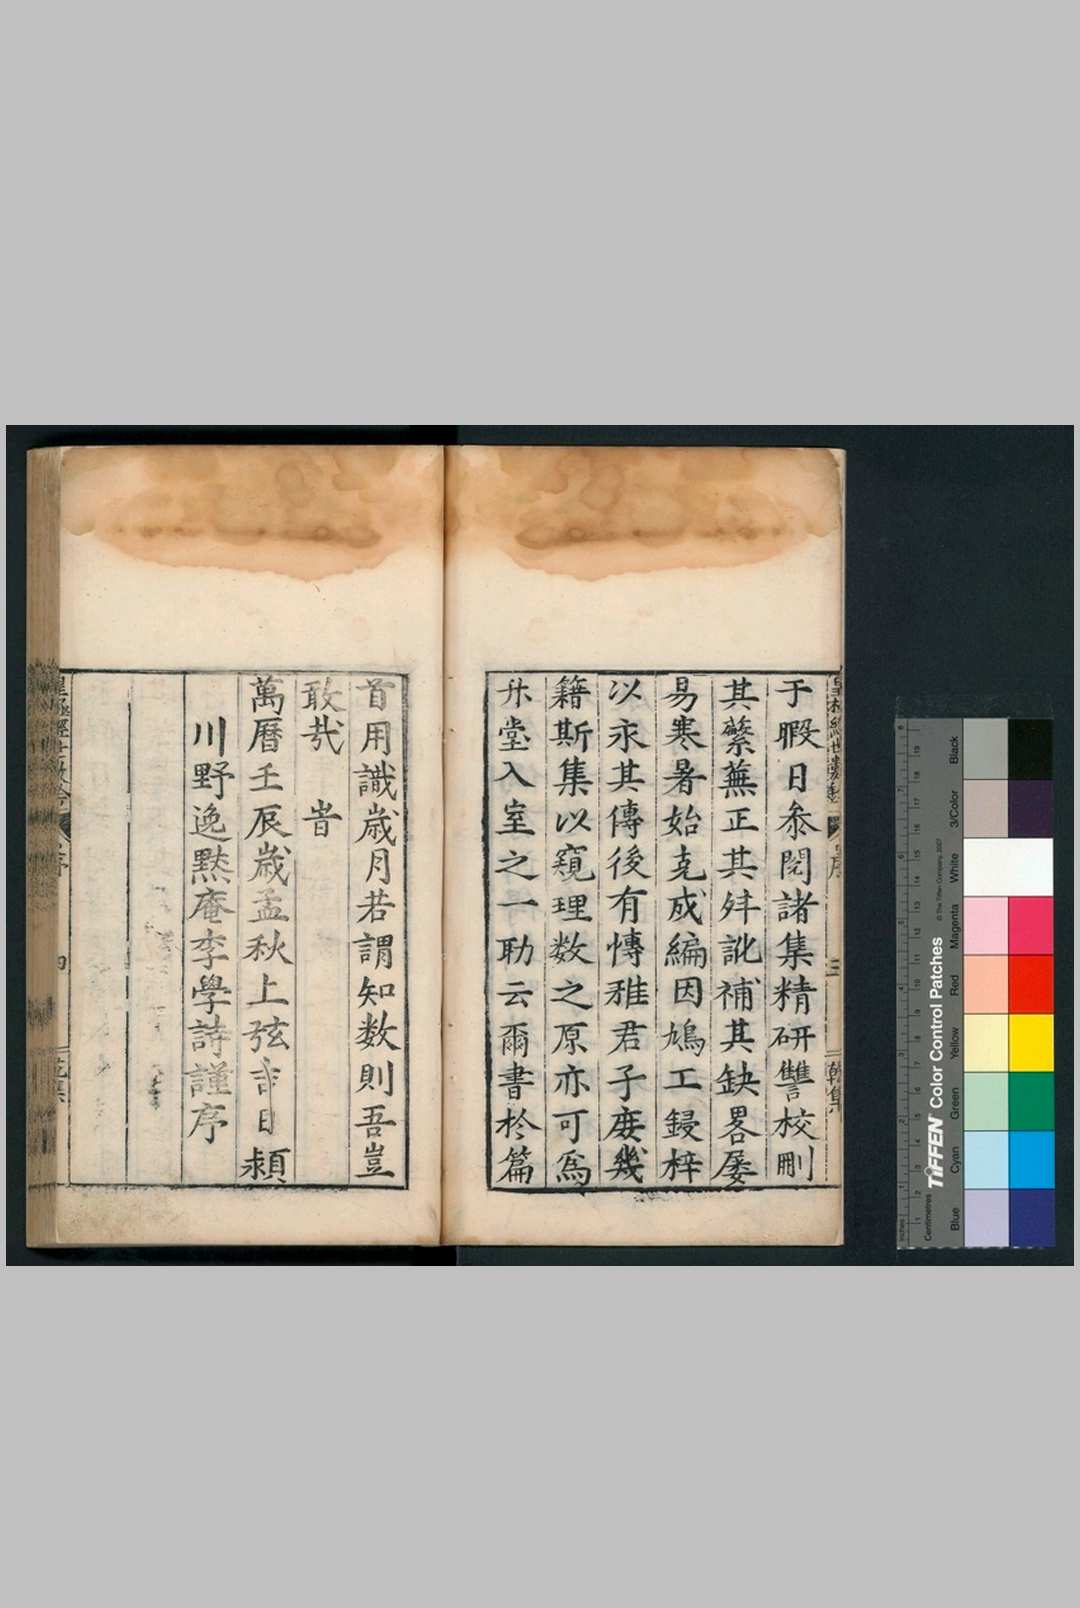 于暇日叅閱諸集精研讐校刪
其蘩蕪正其舛訛補其缺畧屡
易寒暑始克成編因鳩工鋟梓
以永其傳後有愽雅君子庶幾
籍斯集以窺理数之原亦可為
升堂入室之一助云爾書於篇
首用識歳月若謂知数則吾豈
敢哉 旹
萬曆壬辰歳孟秋上弦吉日潁
川野逸黙庵李學詩謹序
乾集
TIFFEN Color Control Patches
© The Tiffen Company, 2007
Centimetres
Inches
Blue
Cyan
Green
Yellow
Red
Magenta
White
3/Color
Black